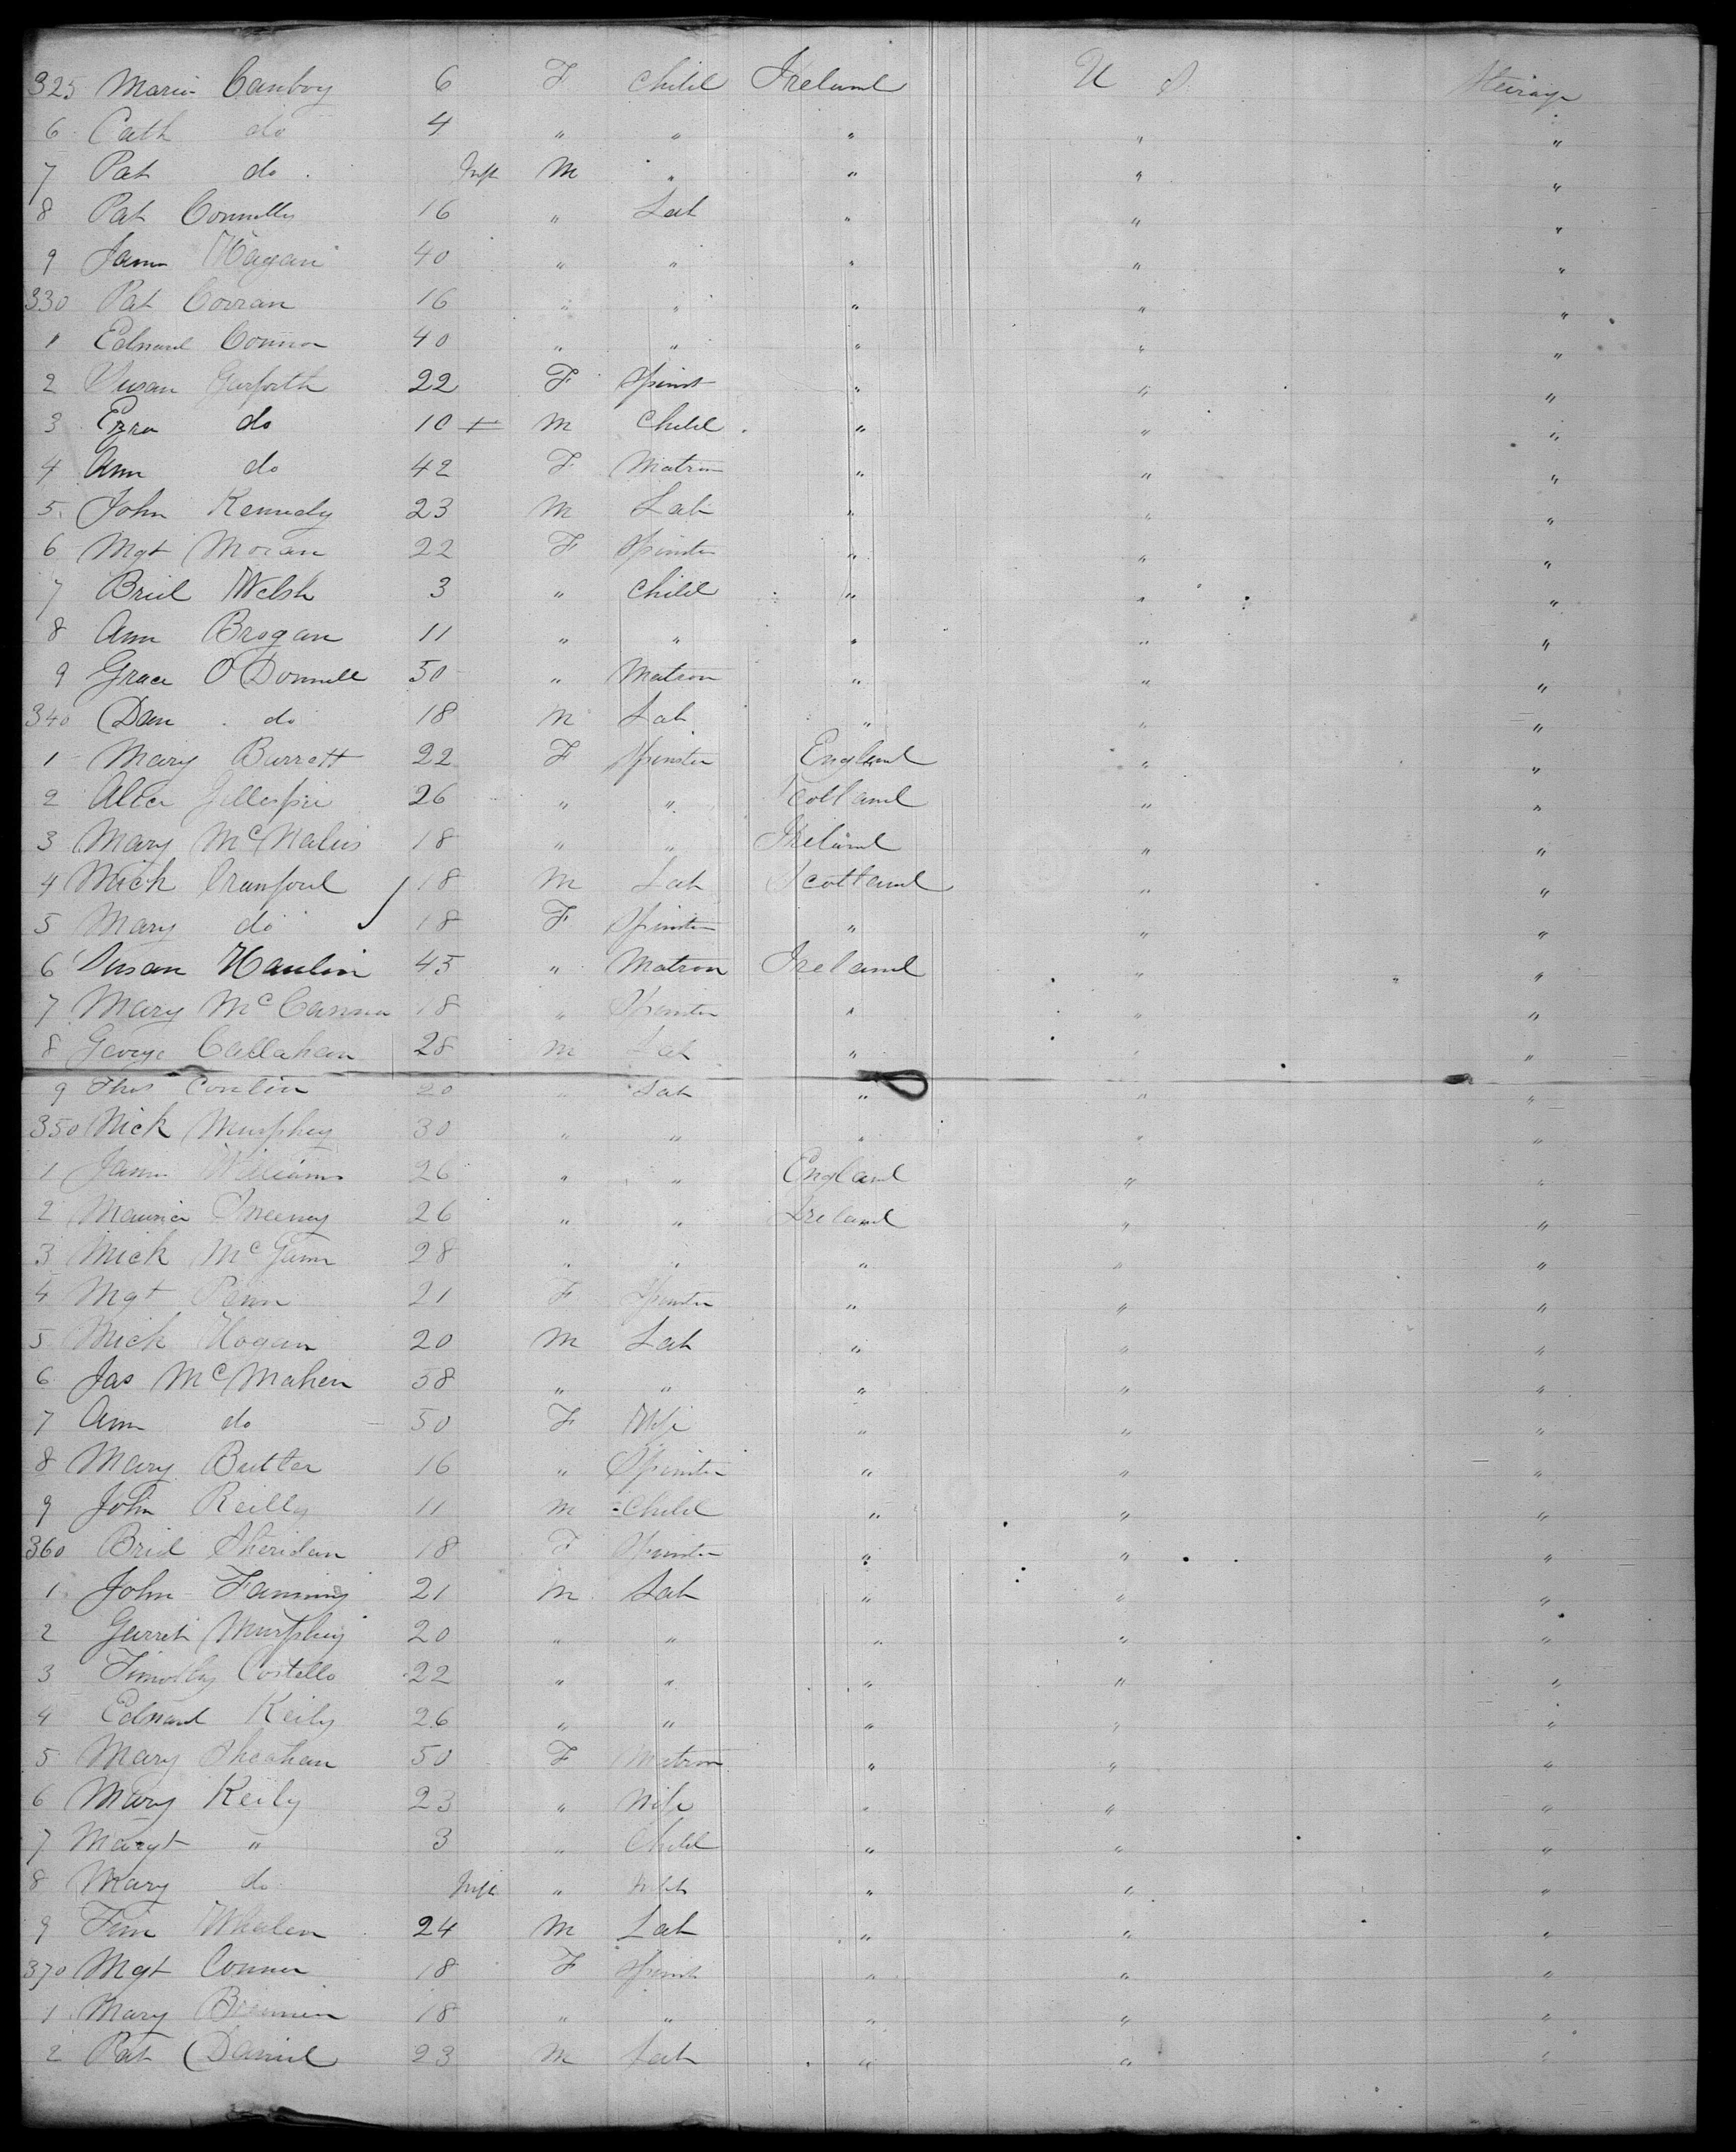 325 Maria Canboy 6 F Child Ireland U S Steirage
6 Cath do 4 " " " " "
7 Pat do Inft M " " " "
8 Pat Connelly 16 " Lab " " "
9 James Hagan 40 " " " " "
330 Pat Corran 16 " " " " "
1 Edward Connor 40 " " " " "
2 Susan Garforth 22 F Spinst " " "
3 Ezra do 10 M Child " " "
4 Ann do 42 F Matron " " "
5 John Kennedy 23 M Lab " " "
6 Mgt Moran 22 F Spinster " " "
7 Brid Welsh 3 " Child " " "
8 Ann Brogan 11 " " " " "
9 Grace O'Donnell 50 " Matron " " "
340 Dan do 18 M Lab " " "
1 Mary Barrett 22 F Spinster England " "
2 Alice Gillespie 26 " " Scotland " "
3 Mary McNalus 18 " " Ireland " "
4 Mick Cranford 18 M Lab Scotland " "
5 Mary do 18 F Spinster " " "
6 Susan Hanlin 45 " Matron Ireland " "
7 Mary McCanna 18 " Spinster " " "
8 George Callahan 28 M Lab " " "
9 Thos Conlin 20 " Lab " " "
350 Mick Murphey 30 " " " " "
1 James Williams 26 " " England " "
2 Maurice Sweeney 26 " " Ireland " "
3 Mick McGunn 28 " " " " "
4 Mgt Penn 21 F Spinster " " "
5 Mick Hogan 20 M Lab " " "
6 Jas McMahen 58 " " " " "
7 Ann do 50 F Wife " " "
8 Mary Butler 16 " Spinster " " "
9 John Reilly 11 M Child " " "
360 Brid Sheridan 18 F Spinster " " "
1 John Fanning 21 M Lab " " "
2 Garret Murphey 20 " " " " "
3 Timothy Costello 22 " " " " "
4 Edward Keily 26 " " " " "
5 Mary Sheahan 50 F Matron " " "
6 Mary Keily 23 " Wife " " "
7 Margt " 3 " Child " " "
8 Mary do Inft " Inft " " "
9 Tim Whalen 24 M Lab " " "
370 Mgt Conner 18 F Spinst " " "
1 Mary Brennen 18 " " " " "
2 Pat Daniel 23 M Lab " " "